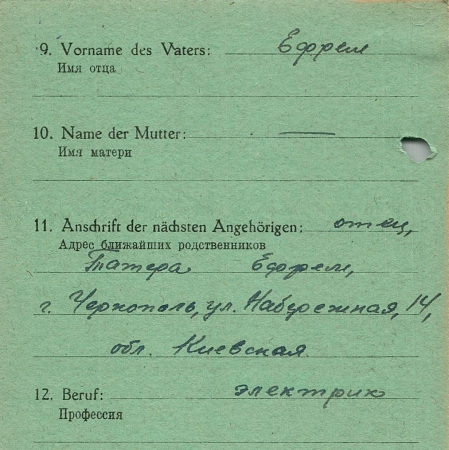 9. Vorname des Vaters: Ефрем
Имя отца
10. Name der Mutter: —
Имя матери
11. Anschrift der nächsten Angehörigen: отец,
Адрес ближайших родственников
Татера Ефрем,
г. Чернополь, ул. Набережная, 14,
обл. Киевская.
12. Beruf: электрик
Профессия